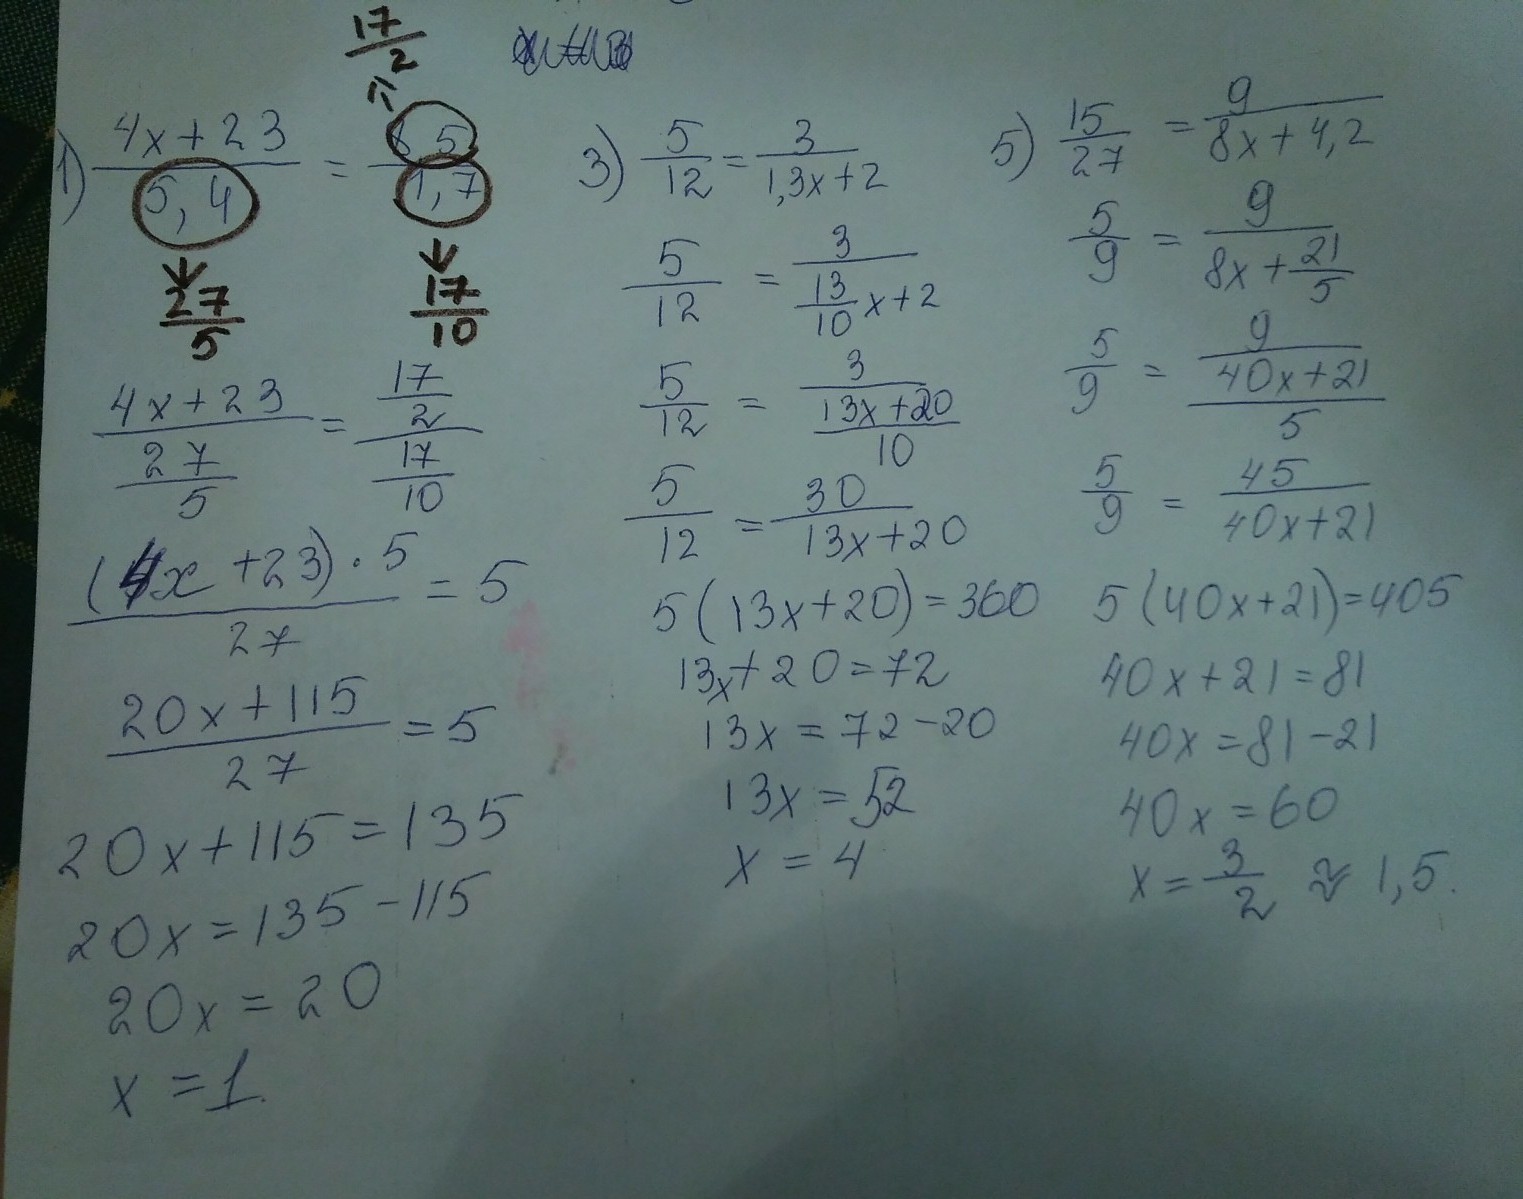 17/2
1) (4x+23)/(5,4) = (8,5)/(1,7)
27/5
17/10
(4x+23)/(27/5) = (17/2)/(17/10)
((4x+23)·5)/27 = 5
(20x+115)/27 = 5
20x+115=135
20x=135-115
20x=20
x=1.
3) 5/12 = 3/(1,3x+2)
5/12 = 3/(13/10 x+2)
5/12 = 3/((13x+20)/10)
5/12 = 30/(13x+20)
5(13x+20)=360
13x+20=72
13x=72-20
13x=52
x=4
5) 15/27 = 9/(8x+4,2)
5/9 = 9/(8x+21/5)
5/9 = 9/((40x+21)/5)
5/9 = 45/(40x+21)
5(40x+21)=405
40x+21=81
40x=81-21
40x=60
x=3/2 ≈ 1,5.